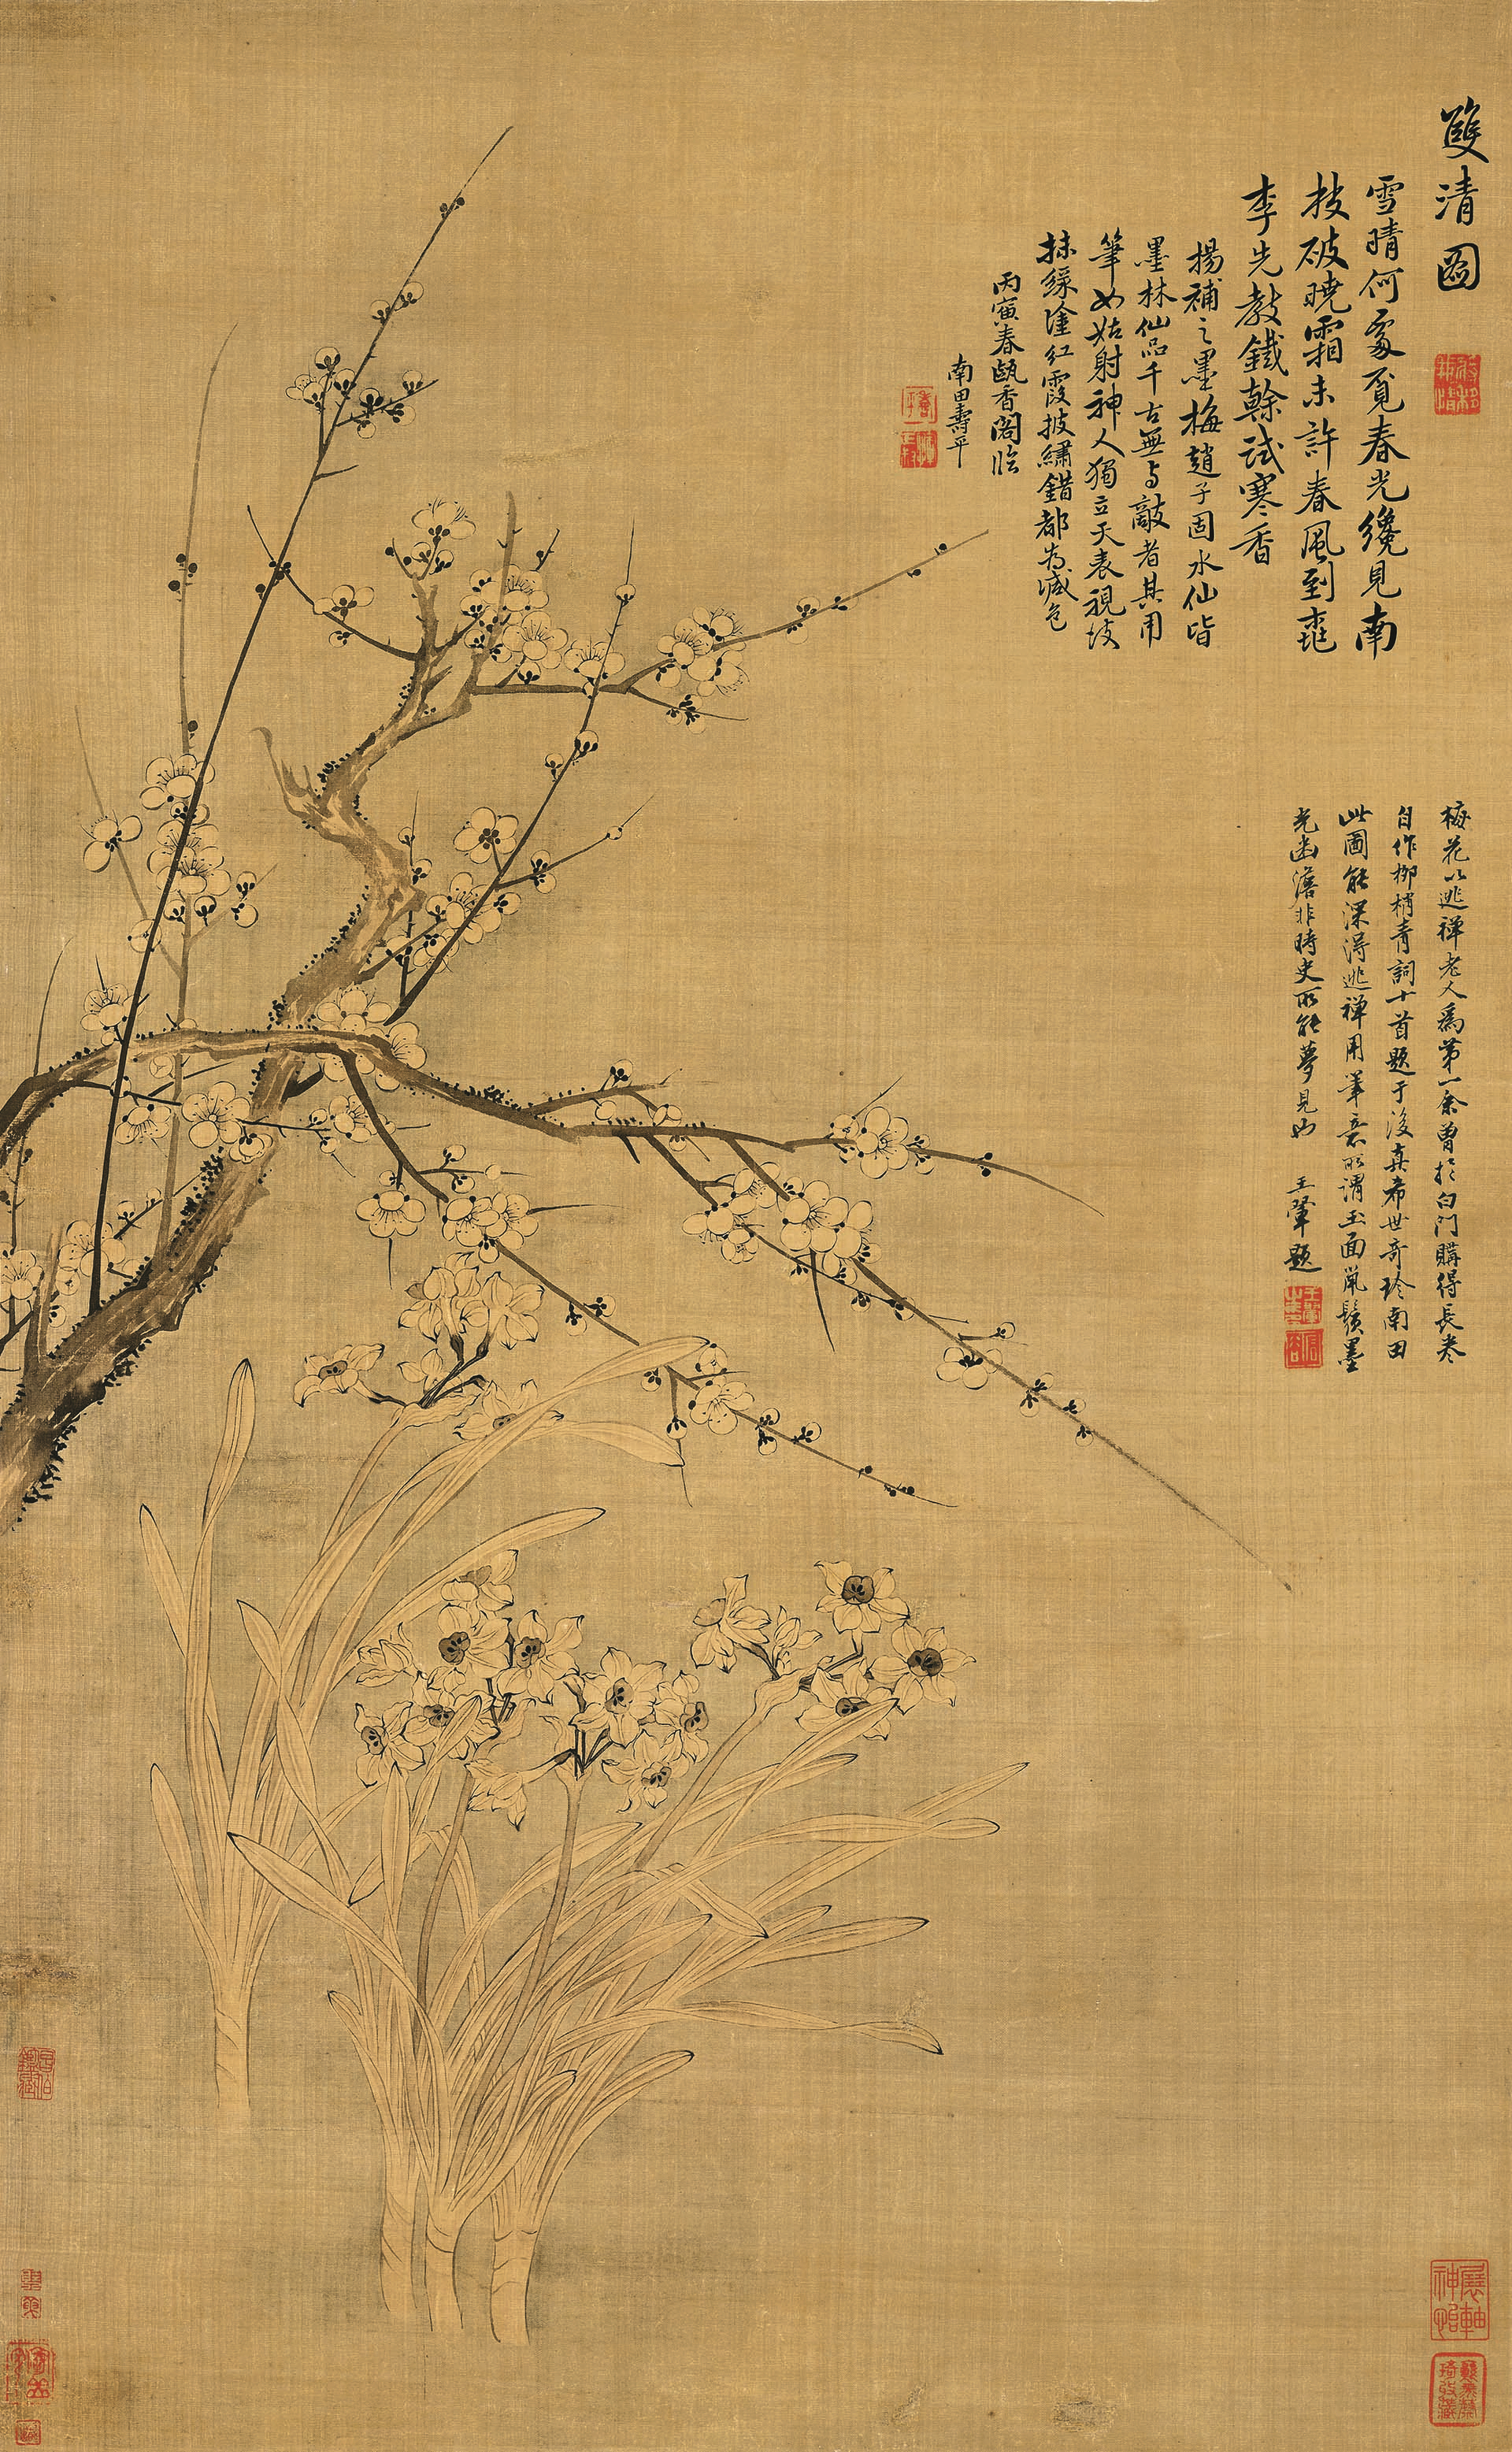 雙清圖
雪晴何處覓春光纔見南
枝破曉霜未許春風到桃
李先教鐵榦試寒香
楊補之墨梅趙子固水仙皆
墨林仙品千古無與敵者其用
筆如姑射神人獨立天表視塗
抹綠塗紅霞披繡錯都為減色
丙寅春甌香閣臨
南田壽平
梅花以逃禪老人為第一余曾於白門購得長卷
自作柳梢青詞十首題于後真希世奇珍南田
此圖能深得逃禪用筆意所謂玉面鼠鬚墨
光幽澹非時史所能夢見也 王翬題